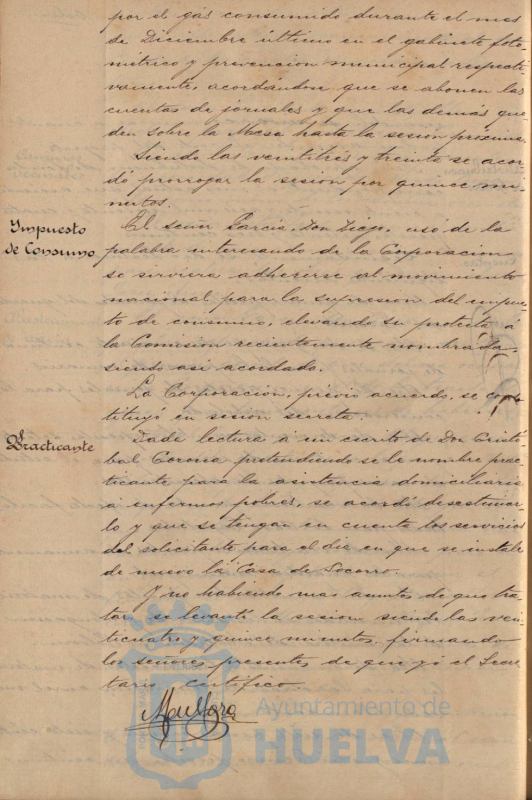 por el gás consumido durante el mes
de Diciembre último en el gabinete foto-
métrico y prevencion municipal respecti-
vamente, acordándose que se abonen las
cuentas de jornales y que las demás que-
den sobre la Mesa hasta la sesión próxima.
Siendo las veintitrés y treinta se acor-
dó prorrogar la sesión por quince mi-
nutos.
Impuesto
de Consumo
El señor García, Don Diego, uso de la
palabra interesando de la Corporacion
se sirviera adherirse al movimiento
nacional para la supresión del impues-
to de consumo, elevando su protesta á
la Comisión recientemente nombrada,
siendo asi acordado.
La Corporación, previo acuerdo, se cons-
tituyó en sesión secreta.
Practicante
Dada lectura á un escrito de Don Cristó-
bal Corona pretendiendo se le nombre prac-
ticante para la asistencia domiciliaria
á enfermos pobres, se acordó desestimar-
lo y que se tengan en cuenta los servicios
del solicitante para el día en que se instale
de nuevo la Casa de Socorro.
Y no habiendo mas asuntos de que tra-
tar, se levantó la sesion siendo las vein-
ticuatro y quince minutos, firmando
los señores presentes de que yó el Secre-
tario certifico
Ayuntamiento de
HUELVA